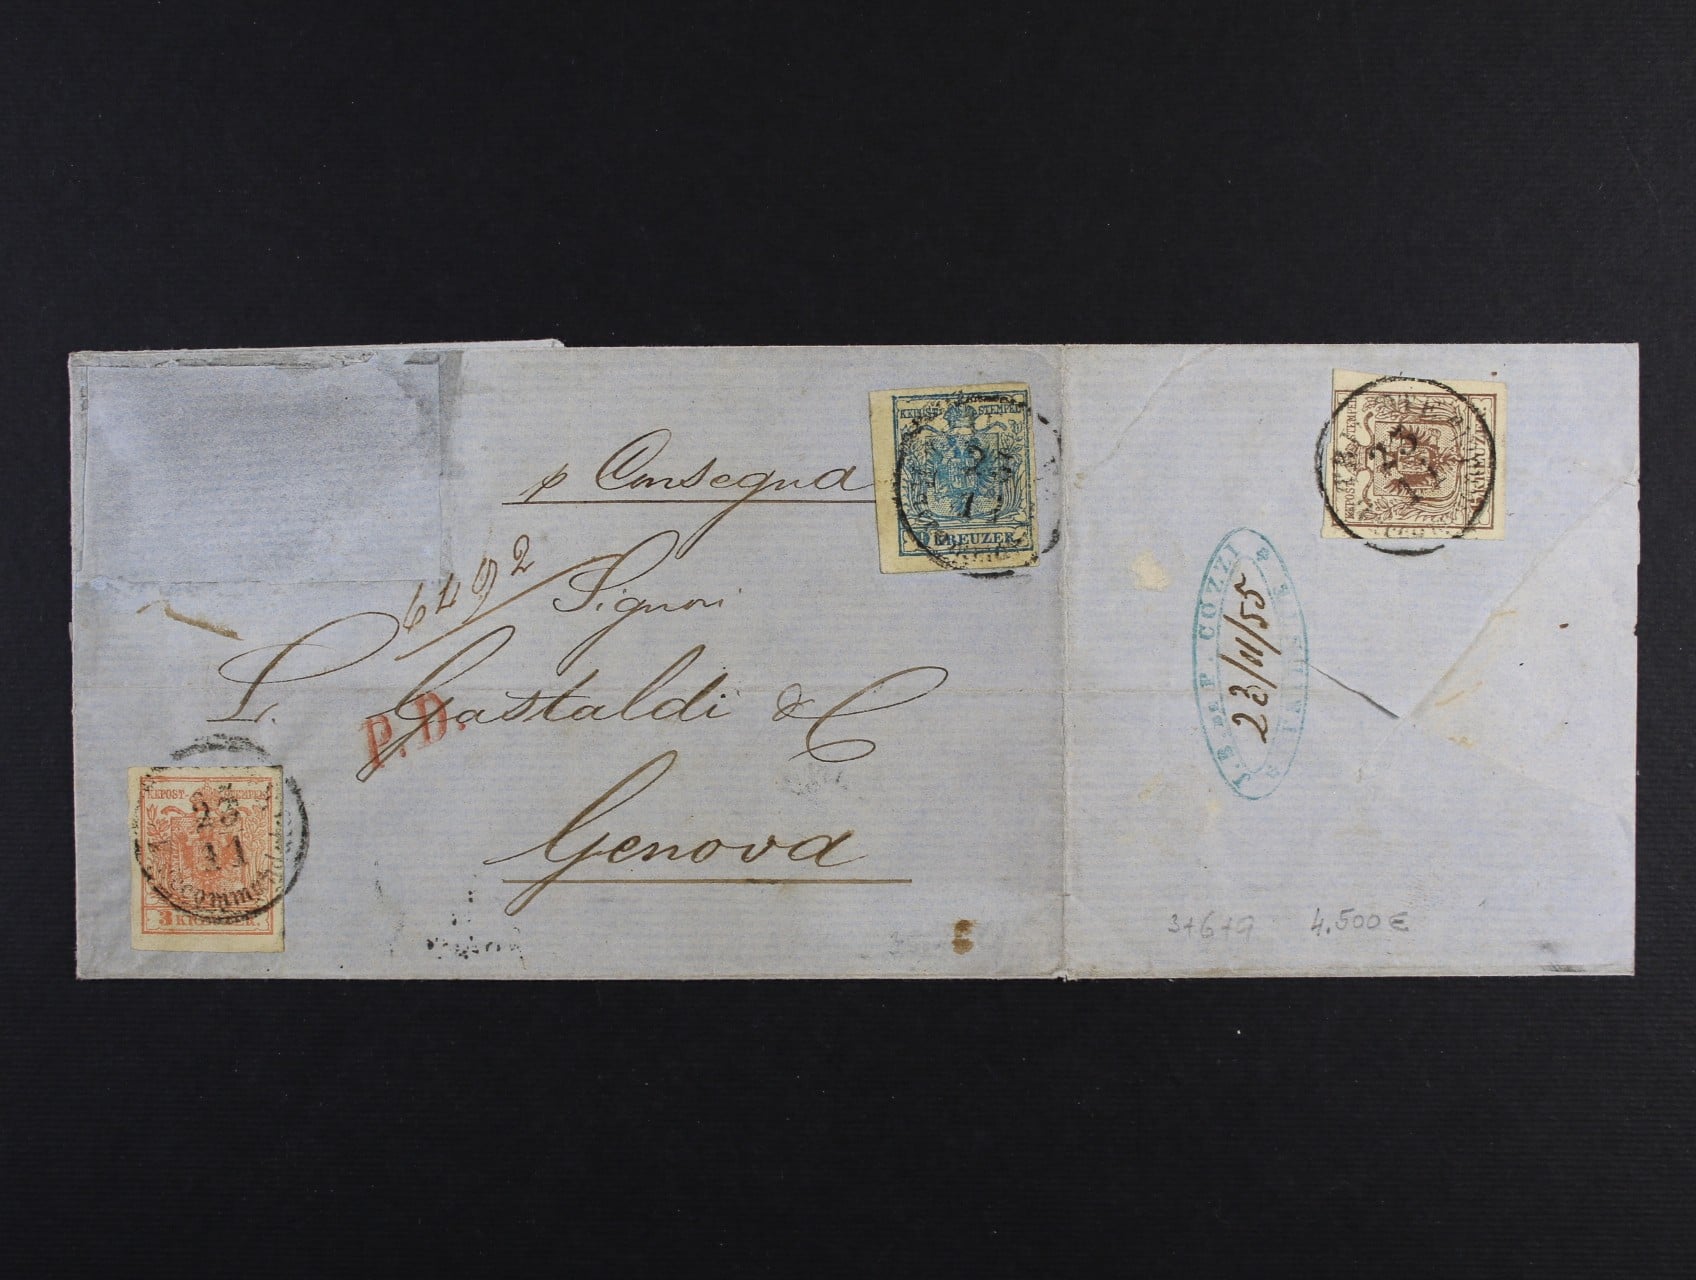 p Consegna
6492
Signori
L. Gastaldi & C
P.D.
Genova
KKPOST-STEMPEL
9 KREUZER
KKPOST-STEMPEL
23
11
Recommandirt
3 KREUZER
KKPOST-STEMPEL
6 KREUZER
23
11
J. B. DA P. COZZI
23/11/55
3+6+9
4.500€